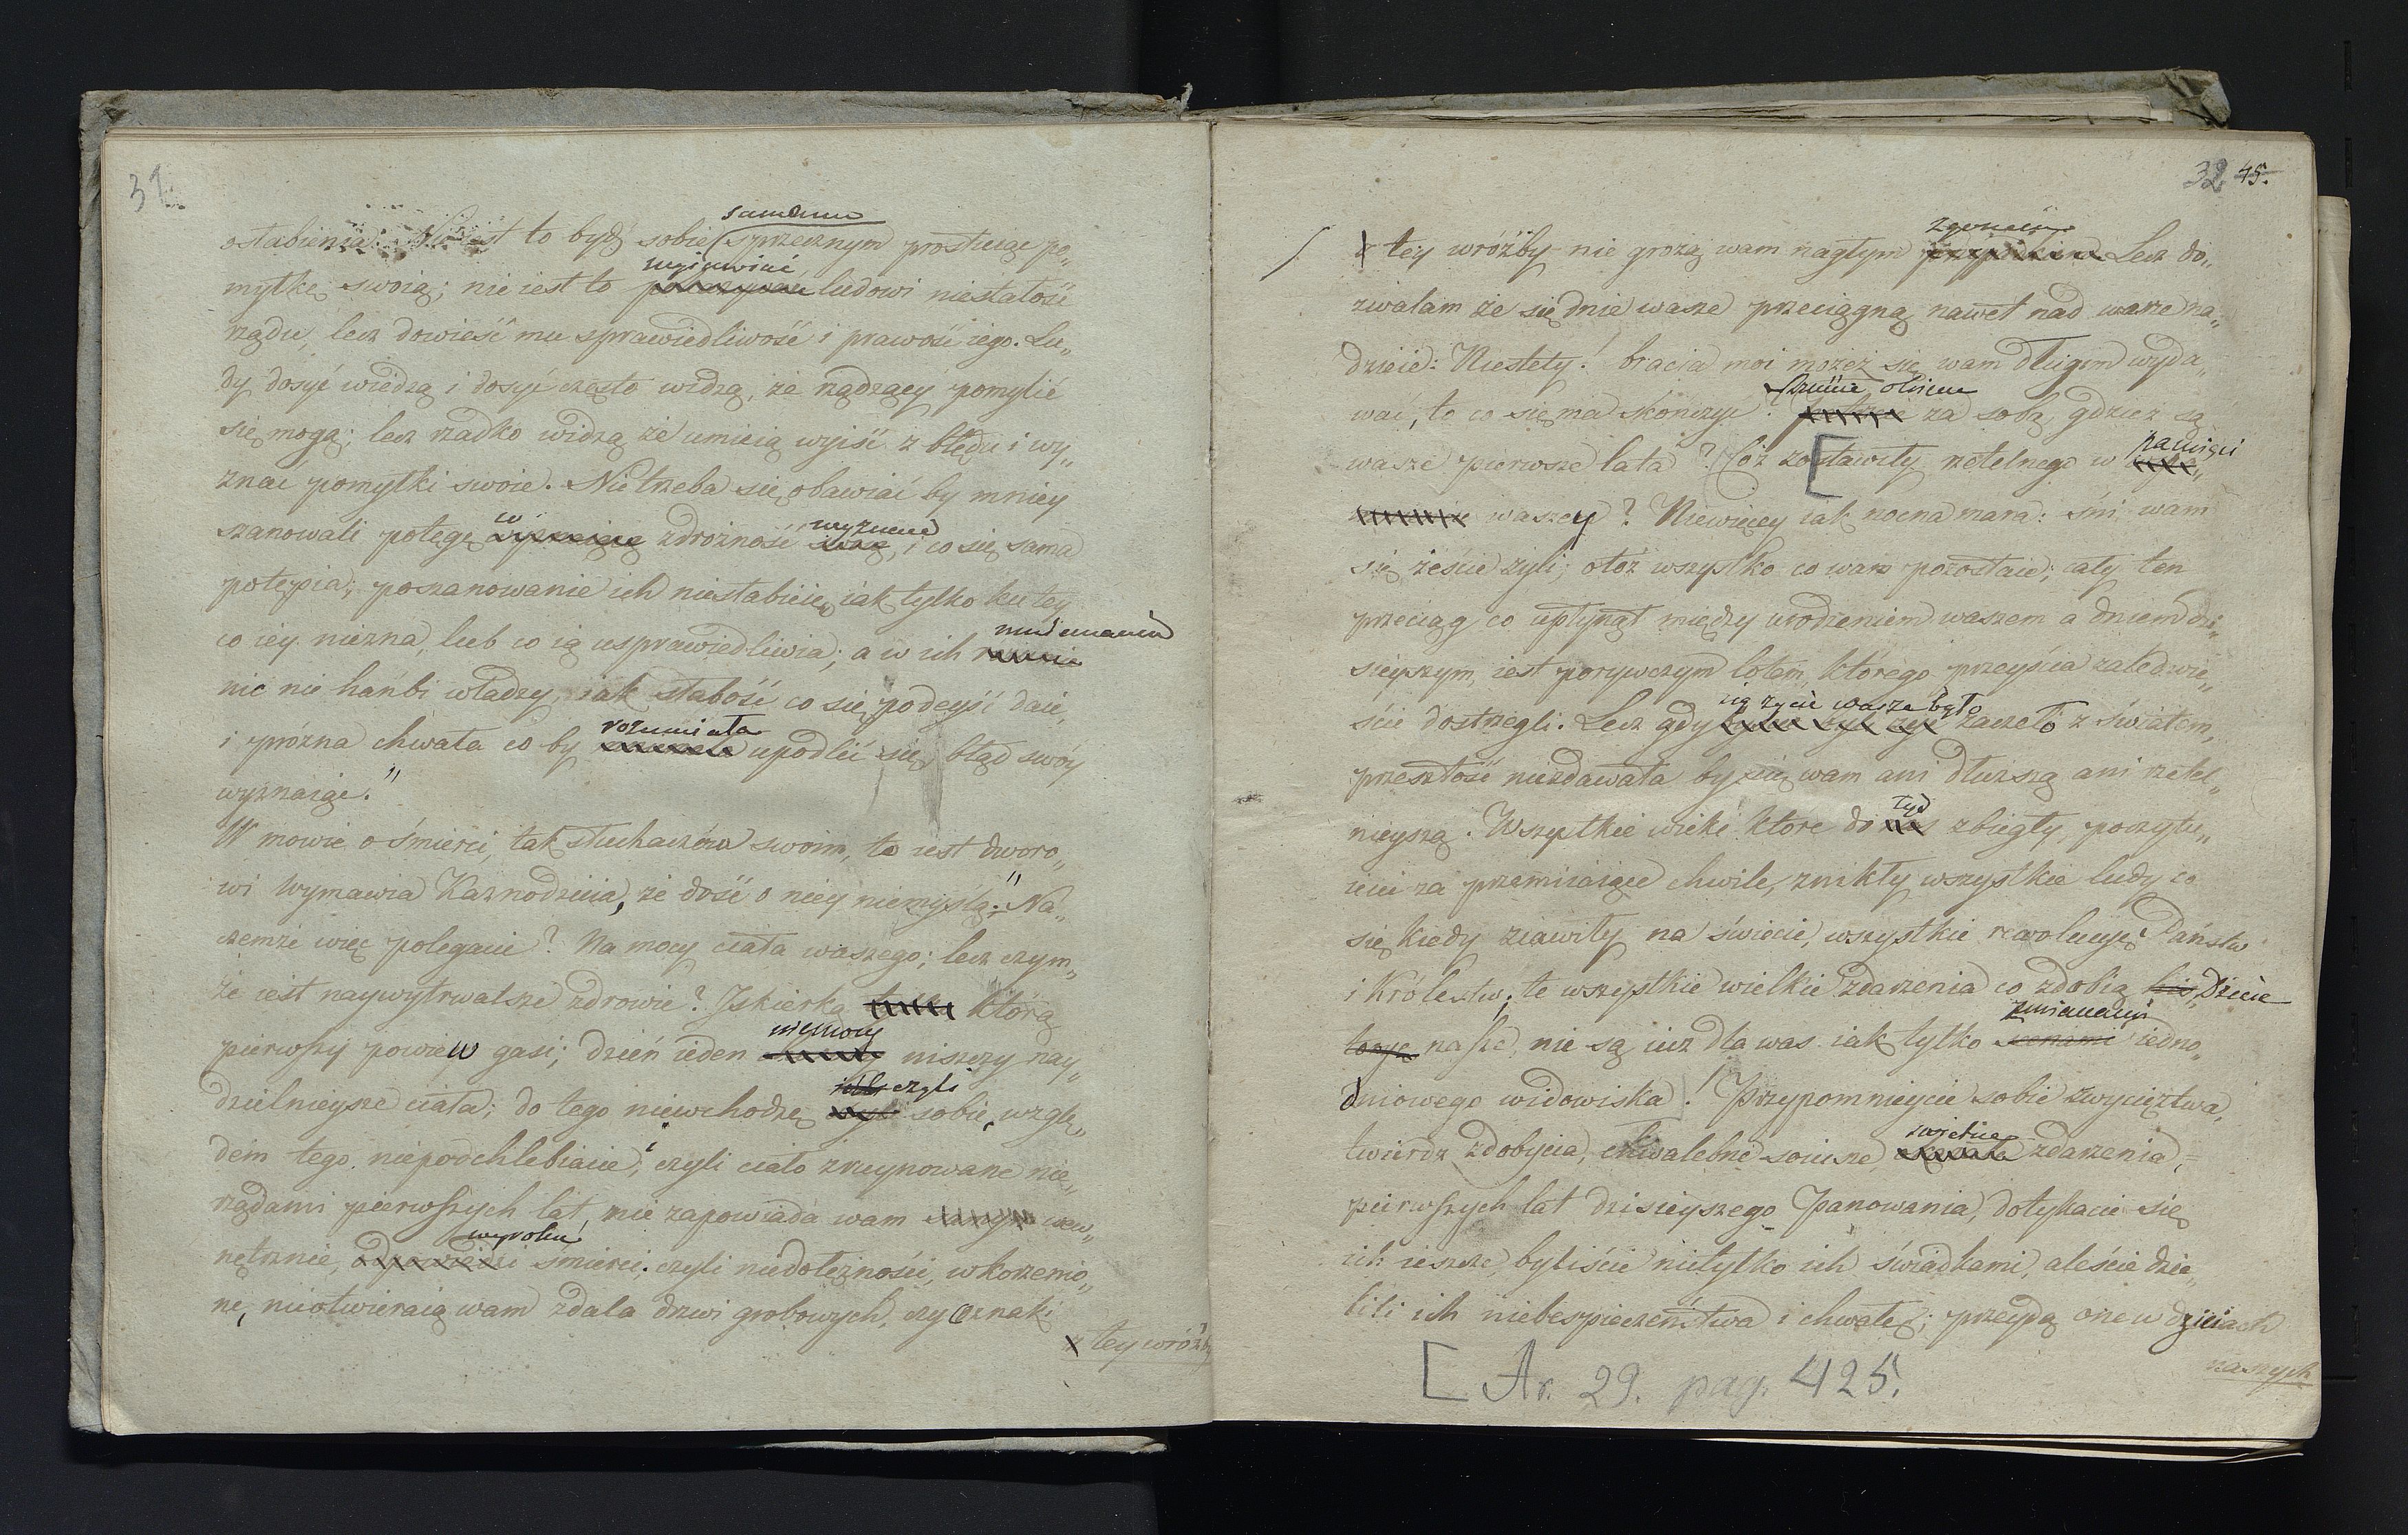 31.
samemu
osłabienia. Nie iest to bydź sobie sprzecznym prostuiąc po„
wyiawiać
myłkę swoią; nie iest to ludowi niestałość
rządu, lecz dowieść mu sprawiedliwość i prawość iego. Lu„
dy dosyć wiedzą i dosyć często widzą, że rządzący pomylić
się mogą; lecz rzadko widzą że umieią wyiść z błędu i wy„
znać pomyłki swoie. Nie trzeba się obawiać by mniey
co wyznaie
szanowali potęgę zdrożność swą, i co się sama
potępia; poszanowanie ich niesłabieie, iak tylko ku tey
mniemaniu
co iey niezna, lub co ią usprawiedliwia; a w ich
nic nie hańbi władzy, iak słabość co się podeyść daie,
rozumiała
i próżna chwała co by upodlić się, błąd swóy
wyznaiąc."
W mowie o śmierci, tak słuchaczów swoim, to iest dworo„
wi wymawia Kaznodzieia, że dość o niey niemyślą; „Na„
czemże więc polegacie? Na mocy ciała waszego; lecz czym„
że iest naywytrwalsze zdrowie? Iskierką którą
niemocy
pierwszy powiew gasi; dzień ieden niszczy nay„
czyli
dzielnieysze ciała; do tego niewchodzę sobie, wzglę„
dem tego niepodchlebiacie; czyli ciało zruynowane nie„
rządami pierwszych lat nie zapowiada wam wew„
wyroku
nętrznie, odpowiedzi śmierci; czyli niedołężności, wkorzenio„
ne, nieotwieraią wam zdala drzwi grobowych, czy oznaki
z tey wróżby
32. 45.
zgonem
z tey wróżby nie grożą wam nagłym przypadkiem Lecz do„
zwalam że się dnie wasze przeciągną nawet nad wasze na„
dzieie: Niestety! bracia moi możeż się wam długim wyda„
wać, to co się ma skończyć? za sobą, gdzież są
pamięci
wasze pierwsze lata? Cóż zostawiły rzetelnego w
waszey? Niewięcey iak nocna mara: śni wam
się żeście żyli; otóż wszystko co wam pozostaie; cały ten
przeciąg co upłynął między urodzeniem waszem a dniem dzi„
sieyszym, iest porywczym lotem, którego przeyścia zaledwie„
się życie wasze było
ście dostrzegli. Lecz gdy zaczęło z światem,
przeszłość niezdawała by się wam ani dłuższą ani rzetel„
tyd
nieyszą. Wszystkie wieki które do nas zbiegły, poczytu„
iecie za przemiiaiące chwile, znikły wszystkie ludy co
się kiedy ziawiły na świecie, wszystkie rewolucye Państw
i Królestw; te wszystkie wielkie zdarzenia co zdobią his„ Dzieie
zmianami
torye nasze, nie są iuż dla was iak tylko scenami iedno„
dniowego widowiska! Przypomnieycie sobie zwycięztwa,
świetne
twierdz zdobycia, chwalebne soiusze, zdarzenia,
pierwszych lat dzisieyszego Panowania, dotykacie się
ich ieszcze, byliście nietylko ich świadkami, aleście dzie„
lili ich niebespieczeństwa i chwałę; przeydą one w dzieiach
naszych
[ Ar. 29. pag. 425.